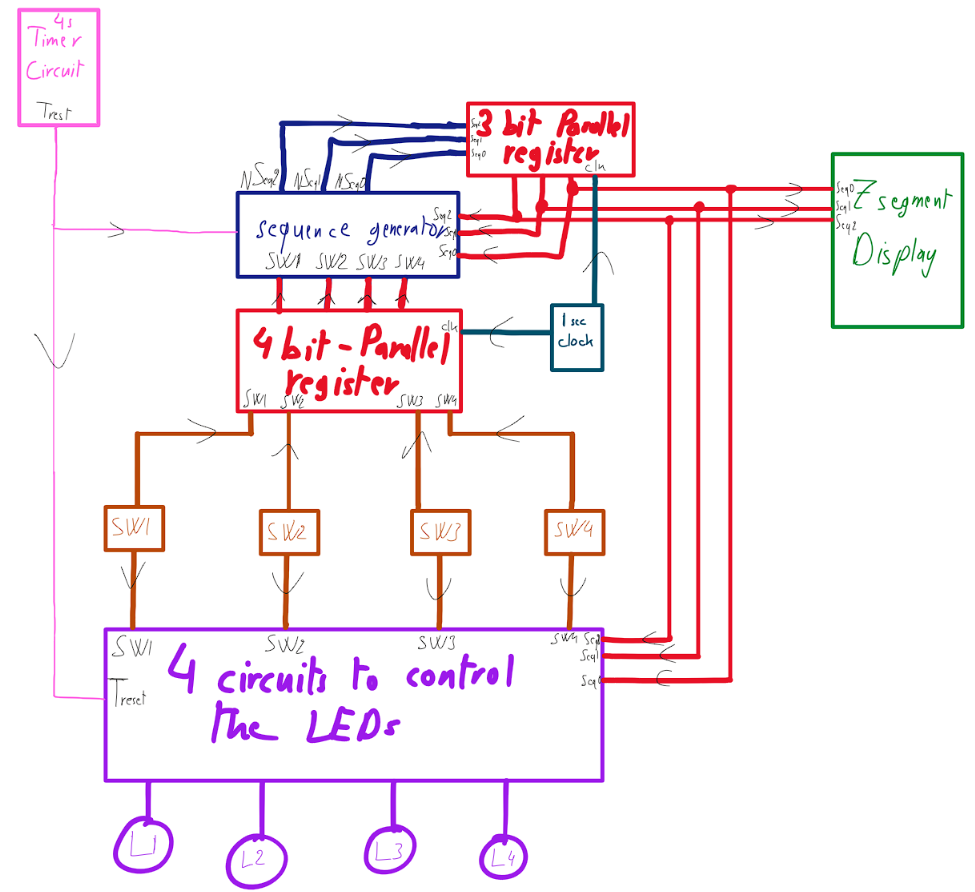 4s
Timer
Circuit
Trest
3 bit Parallel
register
Seq2
Seq1
Seq0
clk
NSeq2 NSeq1 NSeq0
sequence generator
Seq2
Seq0
SW1 SW2 SW3 SW4
Seq0
Seq1
Seq2
7 segment
Display
1 sec
clock
4 bit - Parallel
register
clk
SW1 SW2 SW3 SW4
SW1 SW2 SW3 SW4
SW1 SW2 SW3 SW4
Seq2
Seq1
Seq0
Treset
4 circuits to control
the LEDs
L1 L2 L3 L4